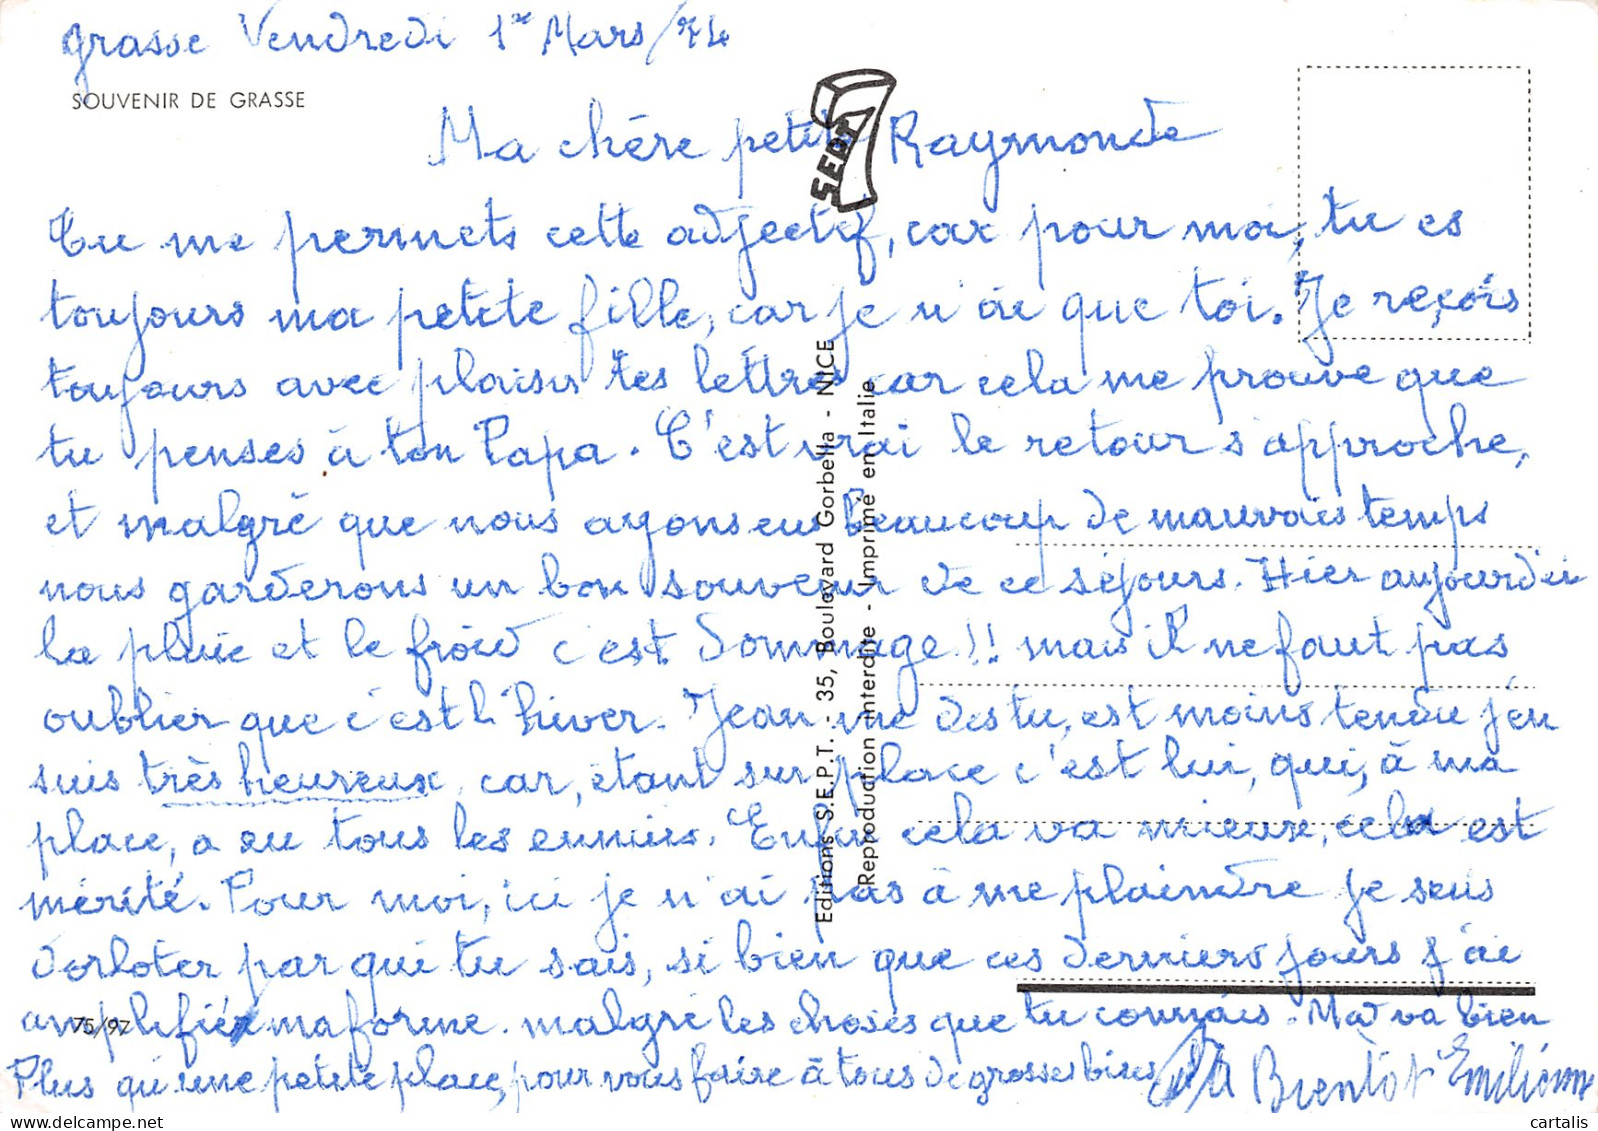 Grasse Vendredi 1er Mars/74
SOUVENIR DE GRASSE
Ma chère petite Raymonde
Tu me permets cette adjectif, car pour moi, tu es
toujours ma petite fille, car je n'ai que toi. Je reçois
toujours avec plaisir tes lettres car cela me prouve que
tu penses à ton Papa. C'est vrai le retour s'approche,
et malgré que nous ayons eus beaucoup de mauvais temps
nous garderons un bon souvenir de ce séjours. Hier aujourdui
la pluie et le froid c'est dommage!! mais il ne faut pas
oublier que c'est l'hiver. Jean me dis tu, est moins tendu j'en
suis très heureux, car, étant sur place c'est lui, qui, à ma
place, a eu tous les ennuis. Enfin cela va mieux, cela est
mérité. Pour moi, ici je n'ai pas à me plaindre je suis
dorloter par qui tu sais, si bien que ces derniers jours j'ai
amplifié ma forme. malgré les choses que tu connais. Ma va bien
Plus qu'une petite place, pour vous faire à tous de grosses bises
A Bientôt Emilienne
SEPT
Editions S.E.P.T. - 35, Boulevard Gorbella - NICE
Reproduction interdite - Imprimé en Italie
75/97
cartalis.com